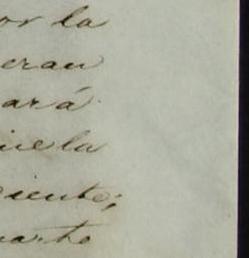 or la
eran
ará
uela
ciente;
uarto